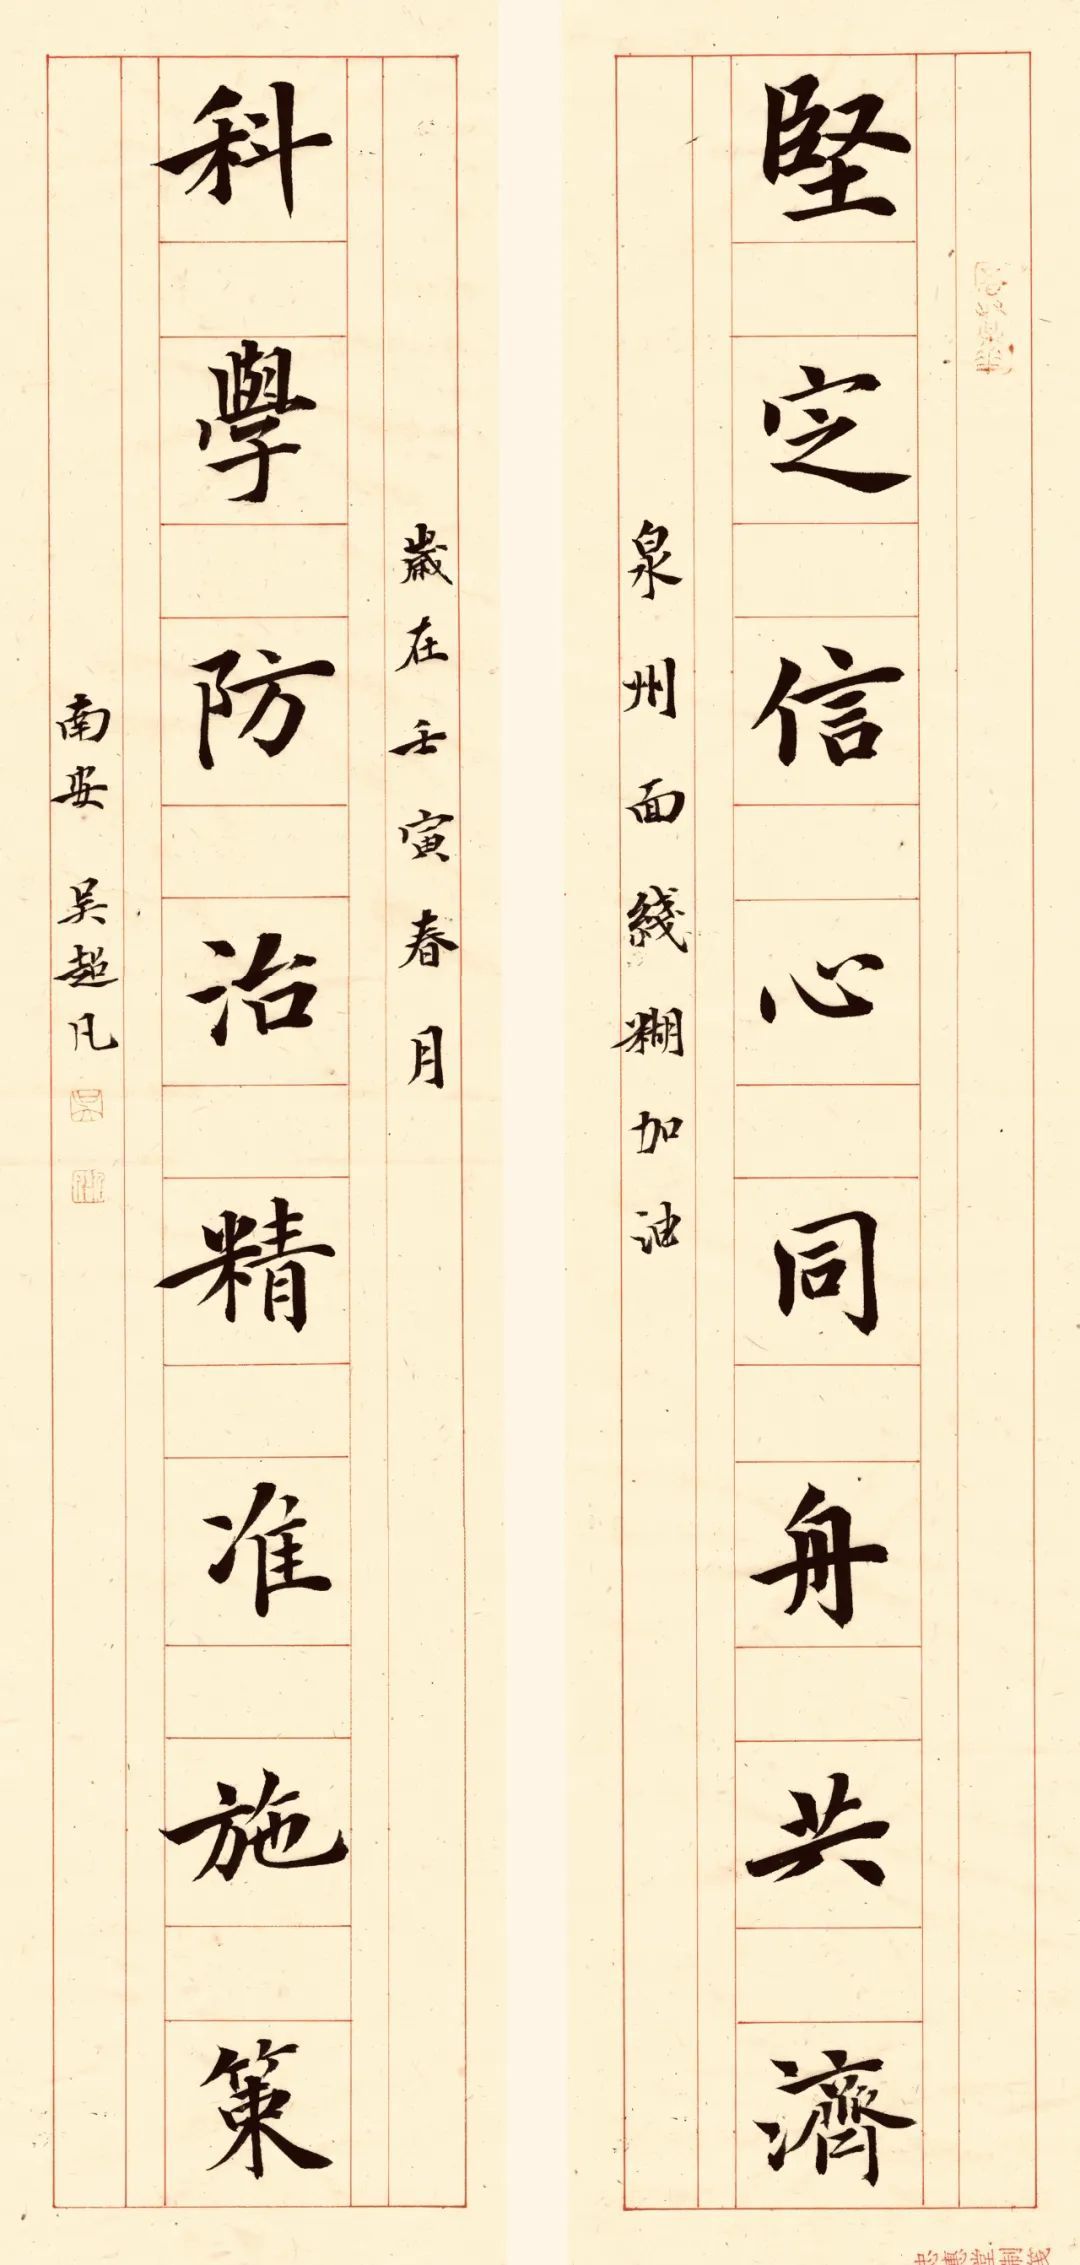 堅定信心同舟共濟
泉州面綫糊加油
歲在壬寅春月
科學防治精准施策
南安 吴超凡